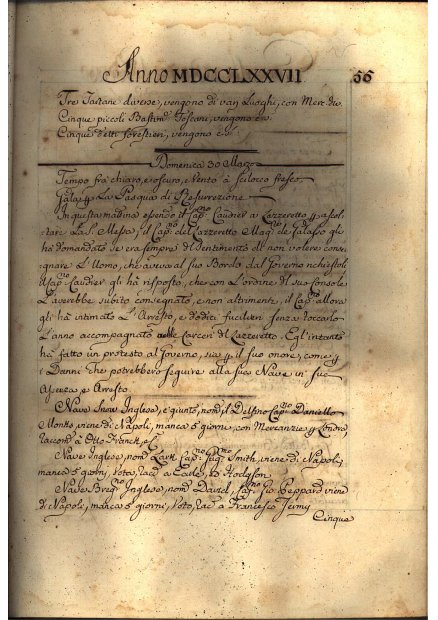 Anno MDCCLXXVII 66
Tre Tartane diverse, vengono di varj Luoghi, con Merc.
Cinque piccoli Bastim. Toscani, vengono
Cinque detti forestieri, vengono
Domenica 30 Marzo
Tempo frà chiaro, e oscuro, e Vento à Scilocco fresco.
Gala La Pasqua di Resurrezione
In questa mattina essendo il Cap. Caudier a Lazzeretto ascol-
tare La S. Messa, il Cap. del Lazzeretto gli
hà domandato se era sempre di Sentimento di non volere conse-
gnare L'Uomo, che aveva al suo Bordo dal Governo richiestoli
Caudier gli hà risposto, che con L'ordine del suo Console
L'averebbe subito consegnato, e non altrimenti, il Cap. allora
gli hà intimato L'Arresto, e dodici fucilieri senza toccarlo
L'anno accompagnato nelle Carceri del Lazzeretto. Egl'intanto
hà fatto un protesto al Governo, sia il suo onore, come
i Danni che potrebbero seguire alla sua Nave in sua
e Arresto.
Nave Snow Inglese, e giunto, nom. il Delfino Cap. Daniello
Monto, viene di Napoli, manca 5 giorni, con Mercanzie Londra,
Raccom. à Otto Franck, e C.
Nave Inglese, nom. Lark Cap. Smith, viene di Napoli,
manca 5 giorni, Vota, Rac. a Earle, e Hodgson.
Nave Brig. Inglese, nom. David, Cap. Gio. Peppard viene
di Napoli, manca 5 giorni, Voto, Rac. a Francesco Jermy
Cinque